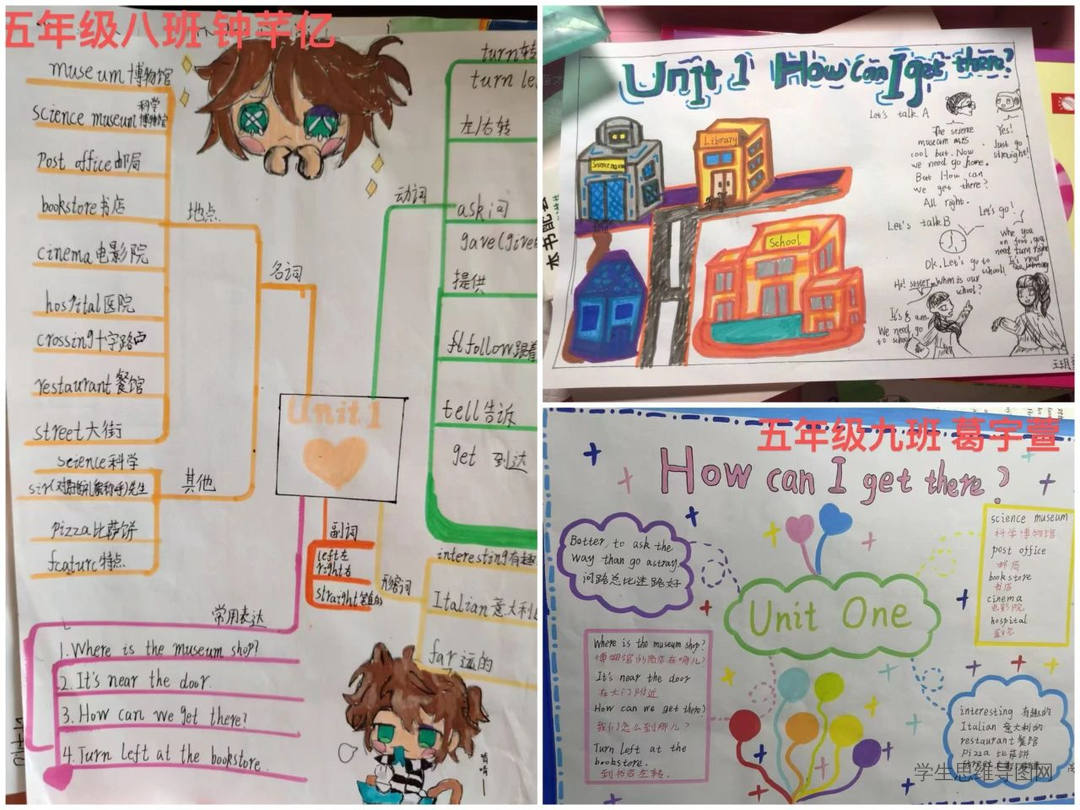 五年级八班 钟芊亿
museum 博物馆
science museum 科学博物馆
post office 邮局
bookstore 书店
cinema 电影院
hospital 医院
crossing 十字路口
restaurant 餐馆
street 大街
地点
名词
science 科学
pizza 比萨饼
feature 特点
其他
Unit 1
动词
turn 转
turn le
左/右转
ask 问
gave (give
提供
follow 跟着
tell 告诉
get 到达
副词
left 左
right 右
straight
形容词
interesting 有趣
Italian 意大利
far 远的
常用表达
1. Where is the museum shop?
2. It's near the door.
3. How can we get there?
4. Turn left at the bookstore.
Unit 1 How can I get there?
Library
School
Let's talk A
The science
museum was
cool but. Now
we need go home.
But How can
we get there?
Yes!
Just go
straight!
All right.
Let's go!
Let's talk B
Ok. Let's go to
school!
It's 8 am.
We need go
to school
五年级九班 葛宇萱
How can I get there?
Botter to ask the
way than go astray.
问路总比迷路好
Unit One
science museum
科学博物馆
post office
邮局
bookstore
书店
cinema
电影院
hospital
医院
Where is the museum shop?
博物馆的商店在哪儿?
It's near the door
在大门附近
How can we get there?
我们怎么到哪儿?
Turn left at the
bookstore.
到书店左转.
interesting 有趣的
Italian 意大利的
restaurant 餐馆
pizza 比萨饼
学生思维导图网